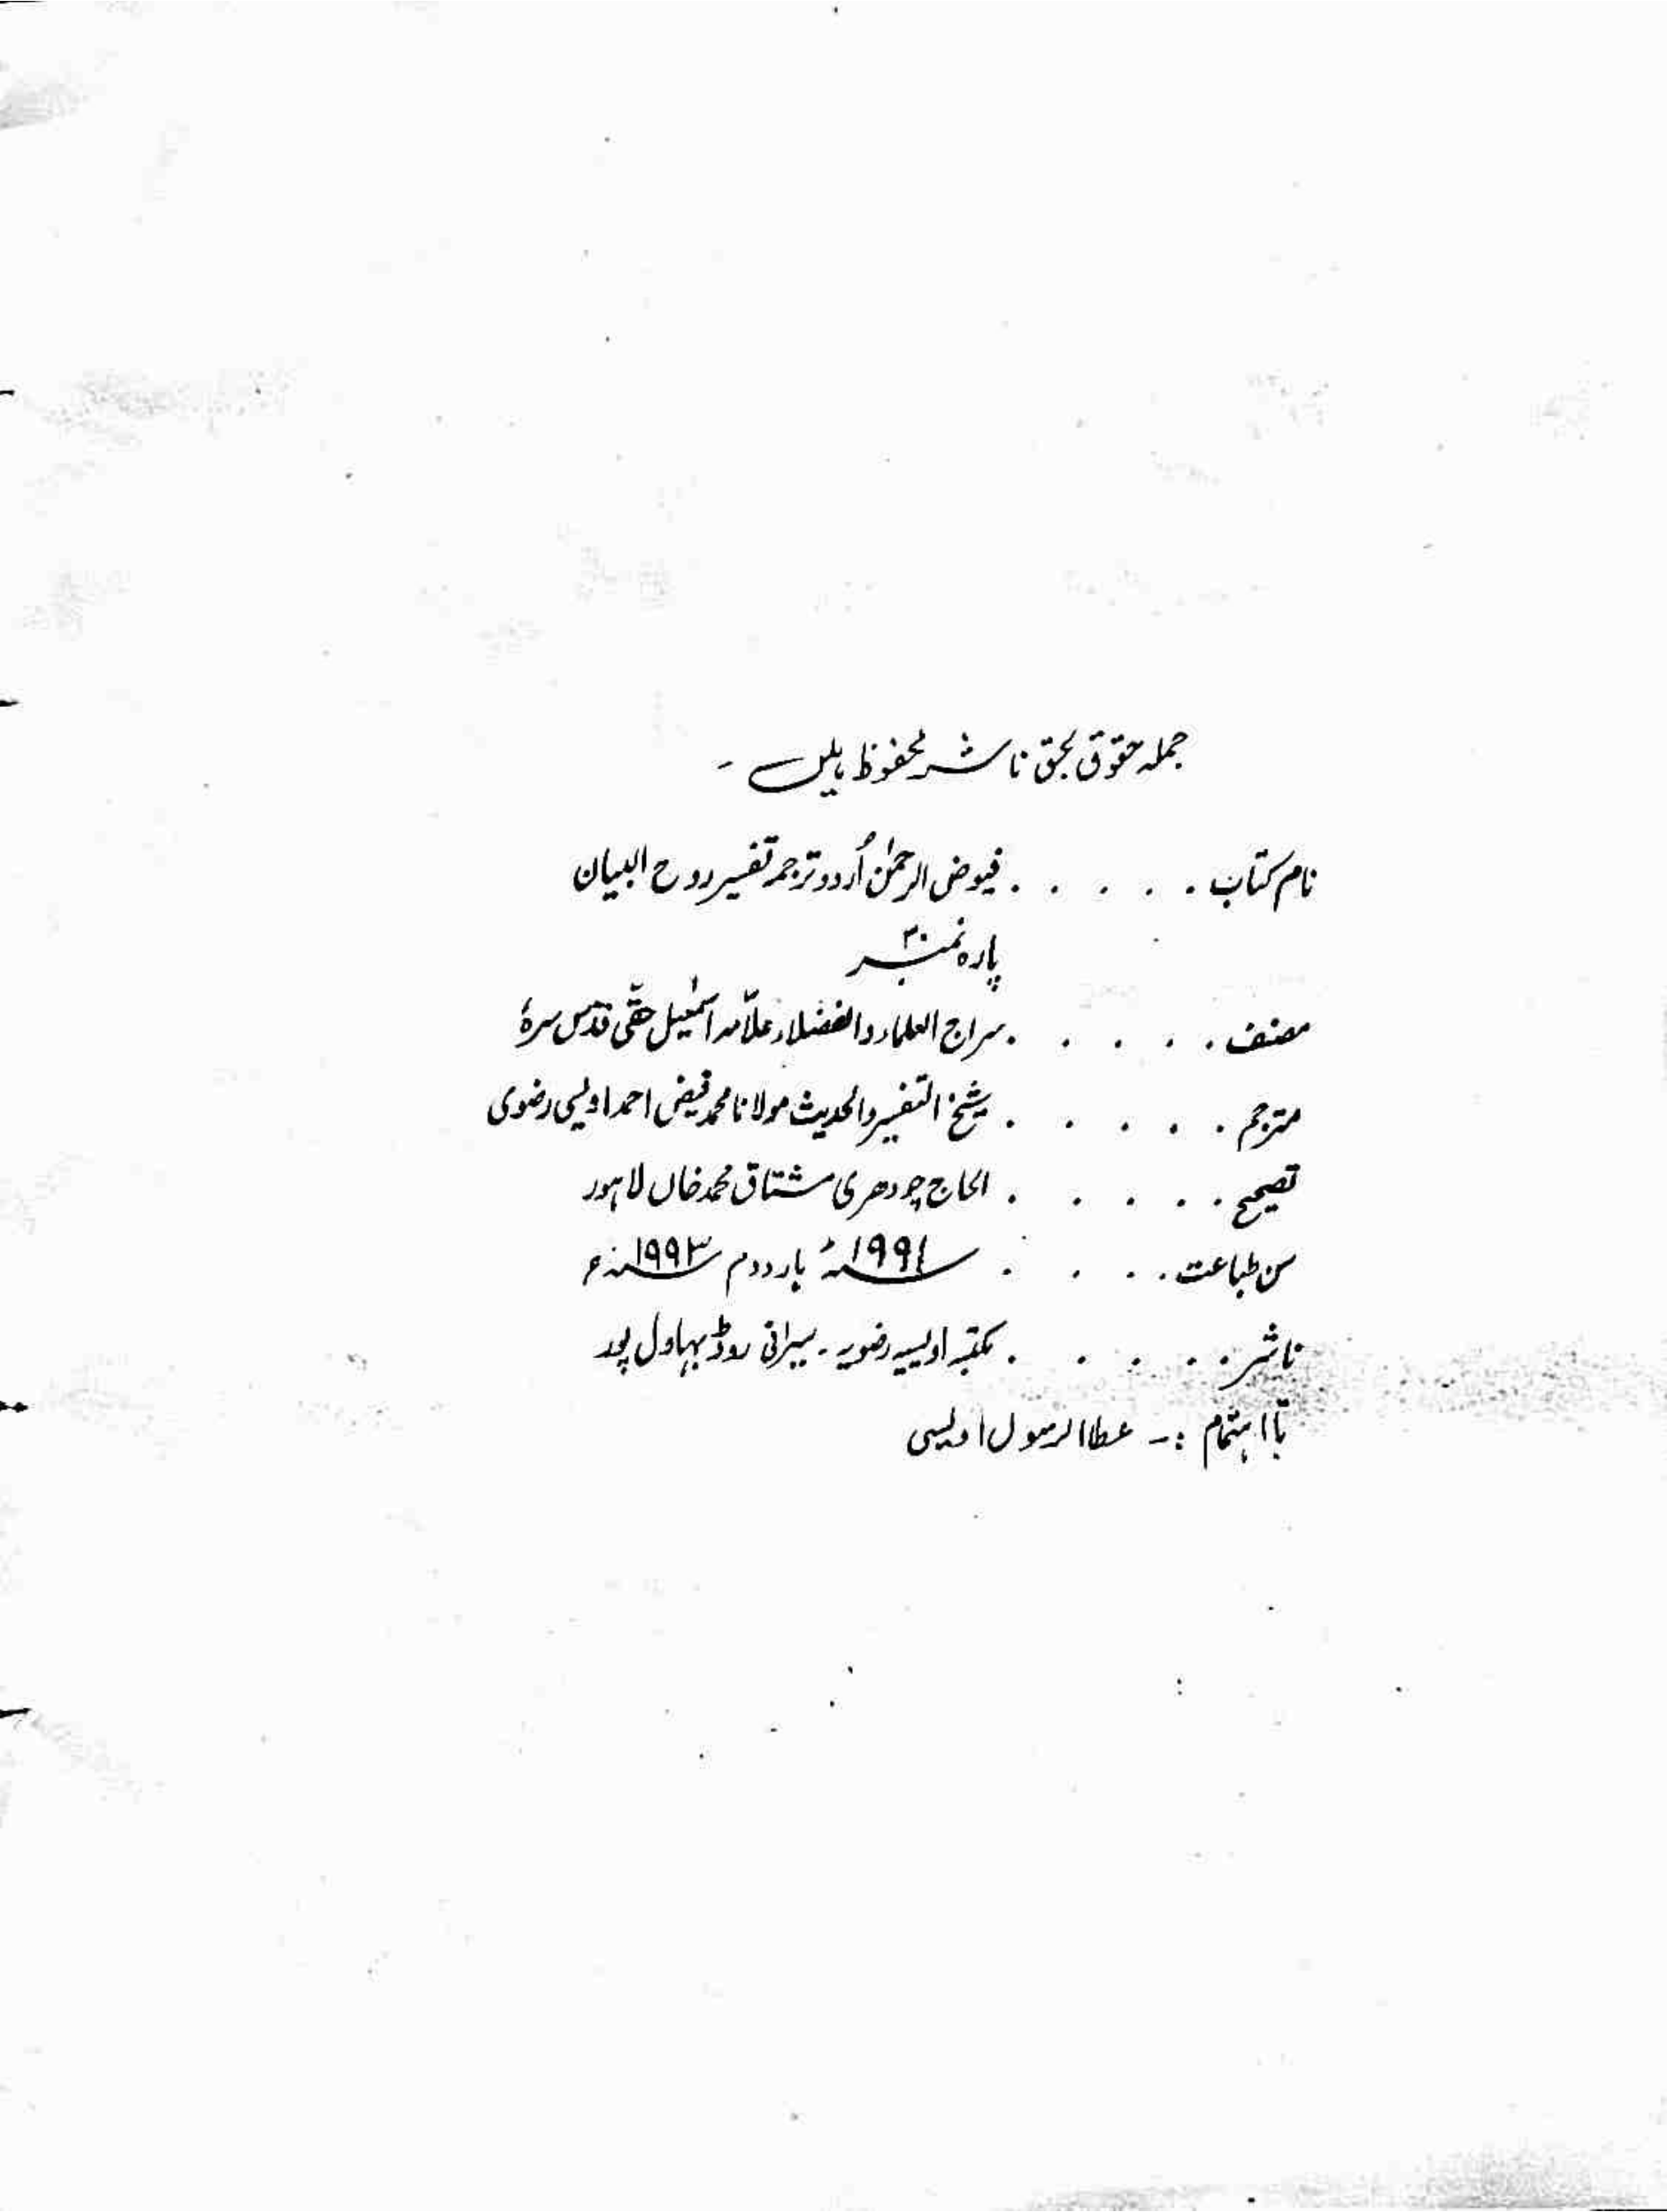 جملہ حقوق بحق ناشر محفوظ ہیں ۔
نام کتاب . . . . . فیوض الرحمٰن اُردو ترجمہ تفسیر روح البیان
پارہ نمبر ۳۰
مصنف . . . . . سراج العلماء والفضلاء علاّمہ اسمٰعیل حقّی قدّس سرہٗ
مترجم . . . . . شیخ التفسیر والحدیث مولانا محمد فیض احمد اویسی رضوی
تصحیح . . . . . الحاج چودھری مشتاق محمد خاں لاہور
سن طباعت . . . . ۱۹۹۱ء بار دوم ۱۹۹۳ء
ناشر . . . . . مکتبہ اویسیہ رضویہ ۔ سیرانی روڈ بہاول پور
باا ہتمام :۔ عطا الرسول اویسی